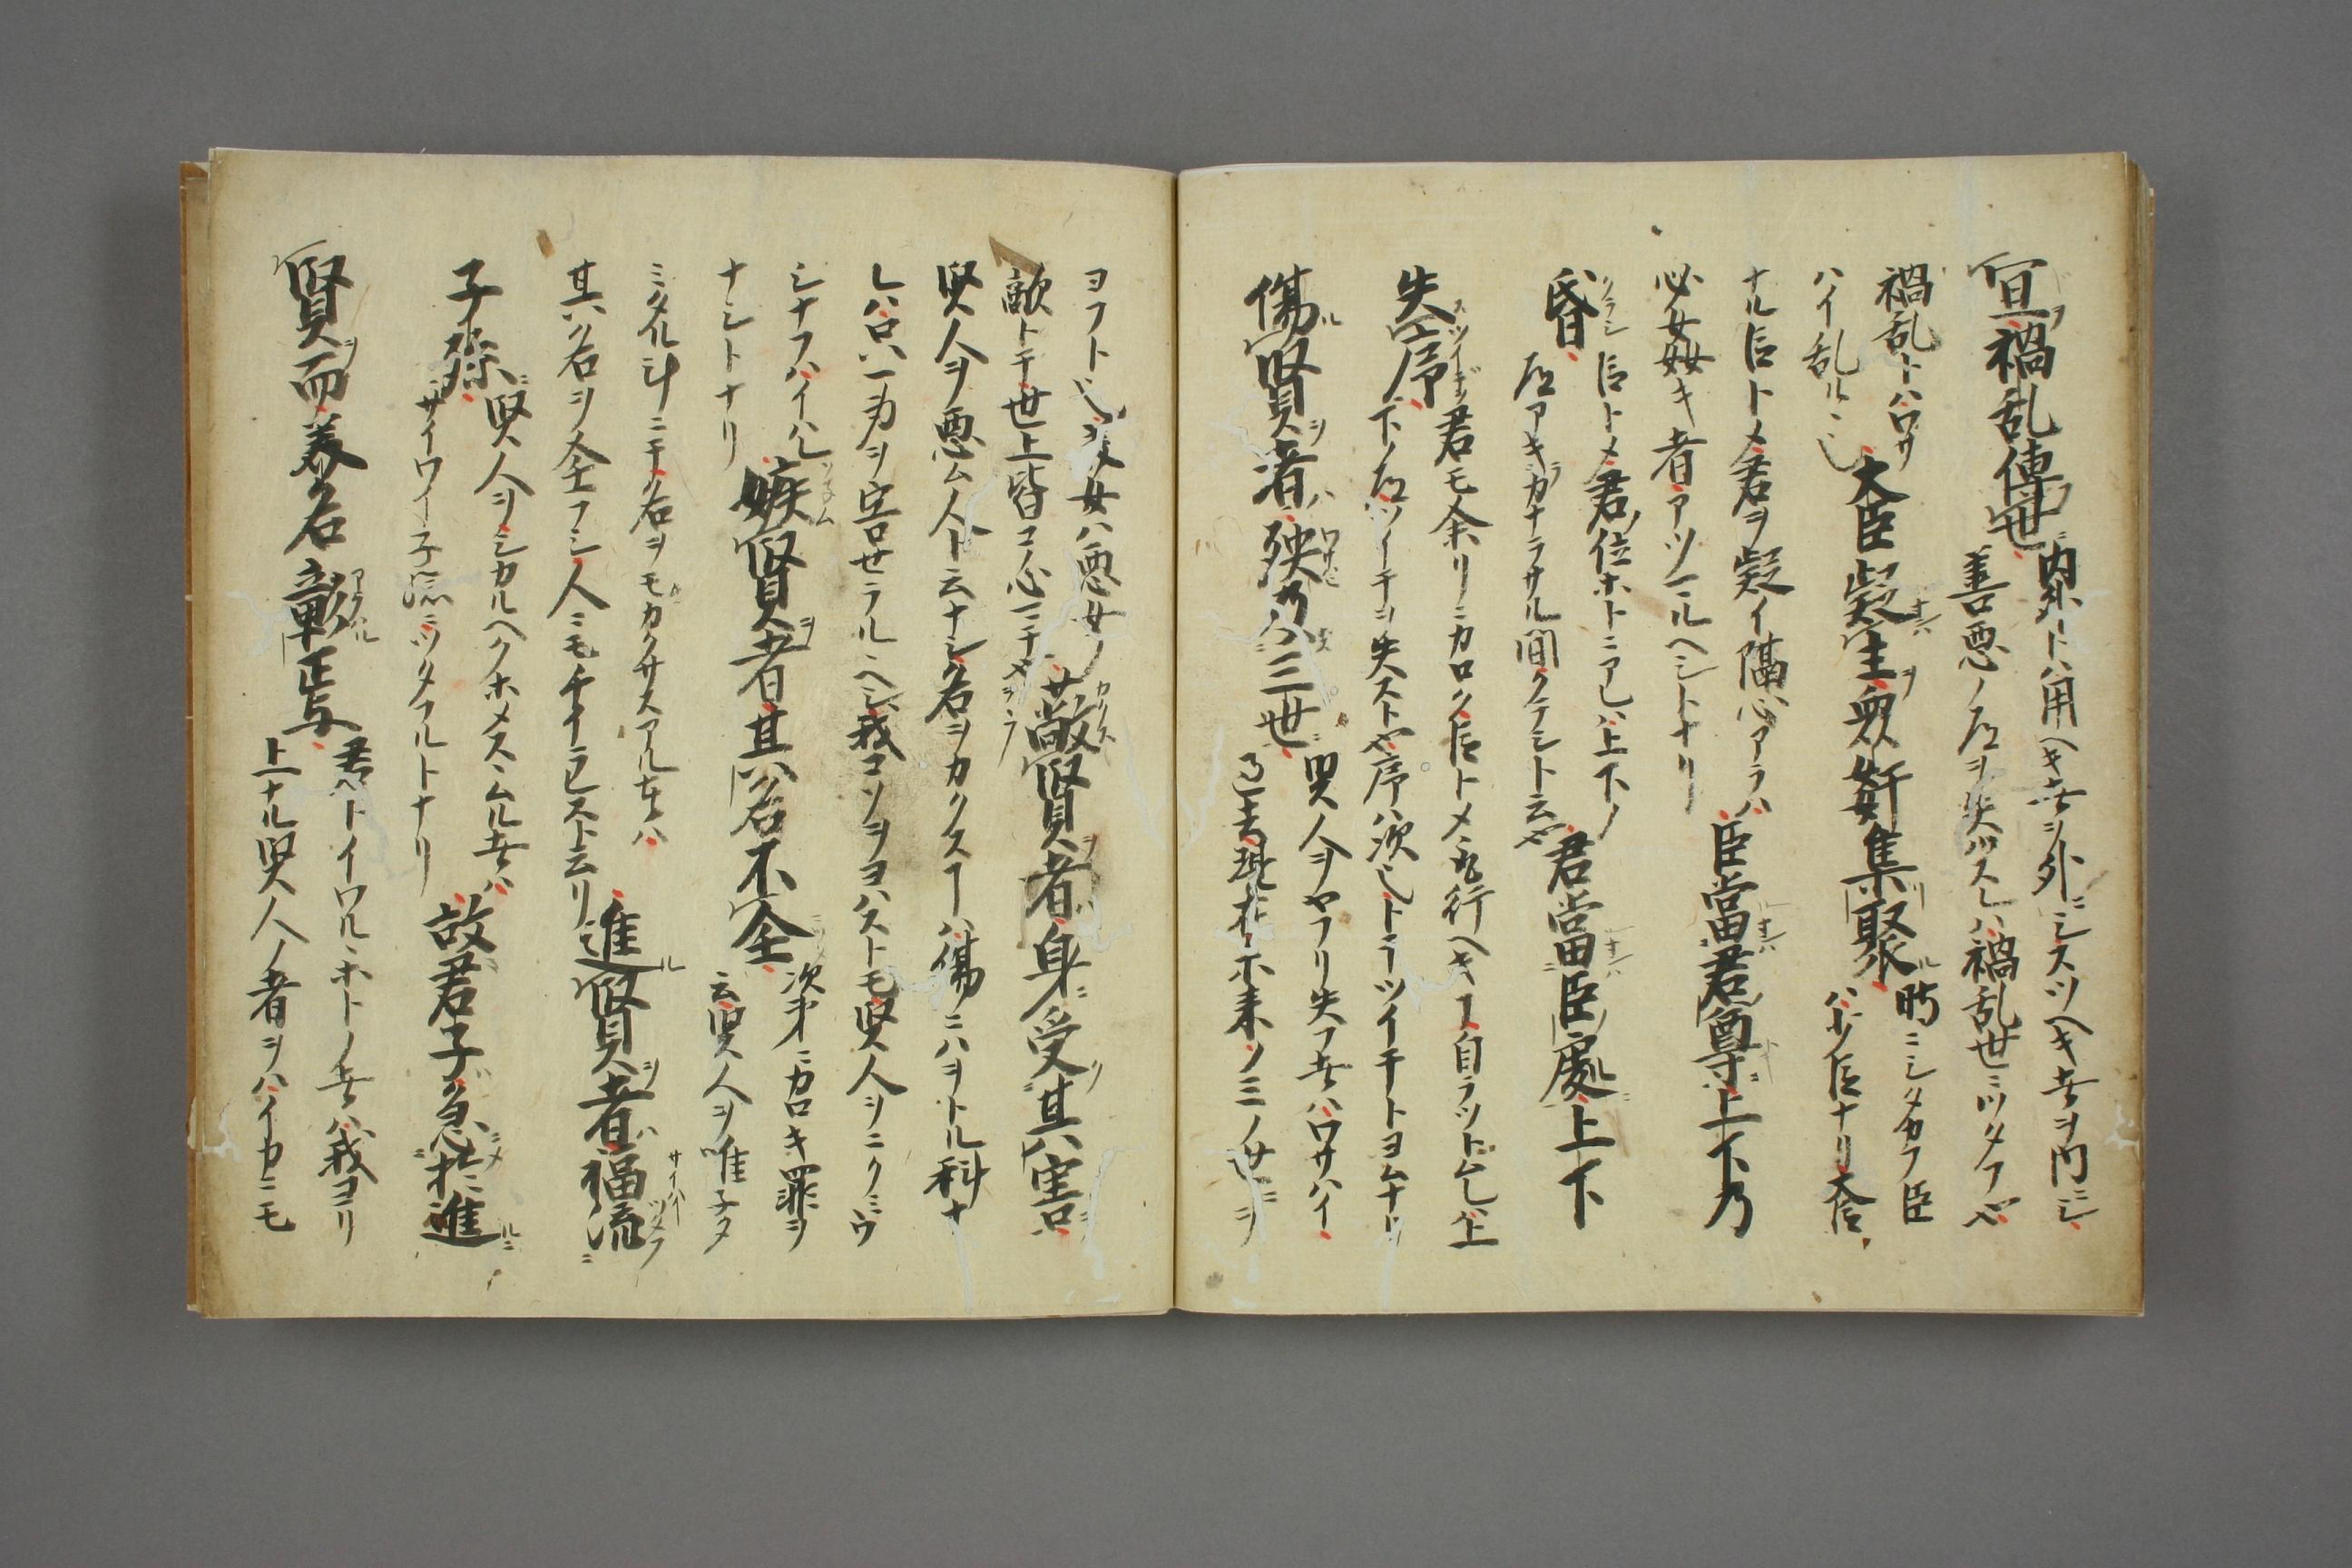 宣禍乱傳世
内外トハ用ヘキ者ヲ外ニシスツヘキ者ヲ内ニシ
善悪ノ道ヲ失ハスレハ禍乱世ニツタフヘシ
禍乱トハワサ
ハイ乱ルヽ也
大臣疑主衆奸集聚
時ニシタカフ臣
ハ少臣ナリ大臣
ナル臣トメ君ヲ疑イ隔心アラハ
必女姧キ者アツマルヘシトナリ
臣當君尊上下乃
昏
臣トメ君ノ位ホトニアレハ上下ノ
道アキラカナラサル間クラシト云也
君當臣處上下
失序
君モ余リニカロク臣トメ行ヘキ丁自ラツトムレハ上
下ノ道ツイテヲ失スト也序ハ次也トテツイテトヨムナリ
傷賢者殃乃三世
賢人ヲヤフリ失フ者ハワサハイ
過去現在未来ノ三ノ世ニヲ
ヨフト也
女ハ悪女ノ
敵トテ世上皆コ心ニテ
蔽賢者身受其害
賢人ヲ悪ム人ト云ナシ名ヲカクス丁ハ傷ニハヲトル科ナ
レハ只一身ヲ害セラルヘシ我コソヲヨハストモ賢人ヲニクミウ
シナフハイハレ
ナシトナリ
嫉賢者其名不全
次第ニカロキ罪ヲ
云賢人ヲ唯子タ
ミタル斗ニテ名ヲモカクサスアル者ハ
其ハ名ヲ全フシ人ニモチイラレスト云リ
進賢者福流
子孫
賢人ヲシカルヘクホメスヽムル者ハ
サイワイ子孫ニツタフルトナリ
故君子急於進
賢而美名彰焉
君子トイワルヽホトノ者ハ我ヨリ
上ナル賢人ノ者ヲハイカニモ